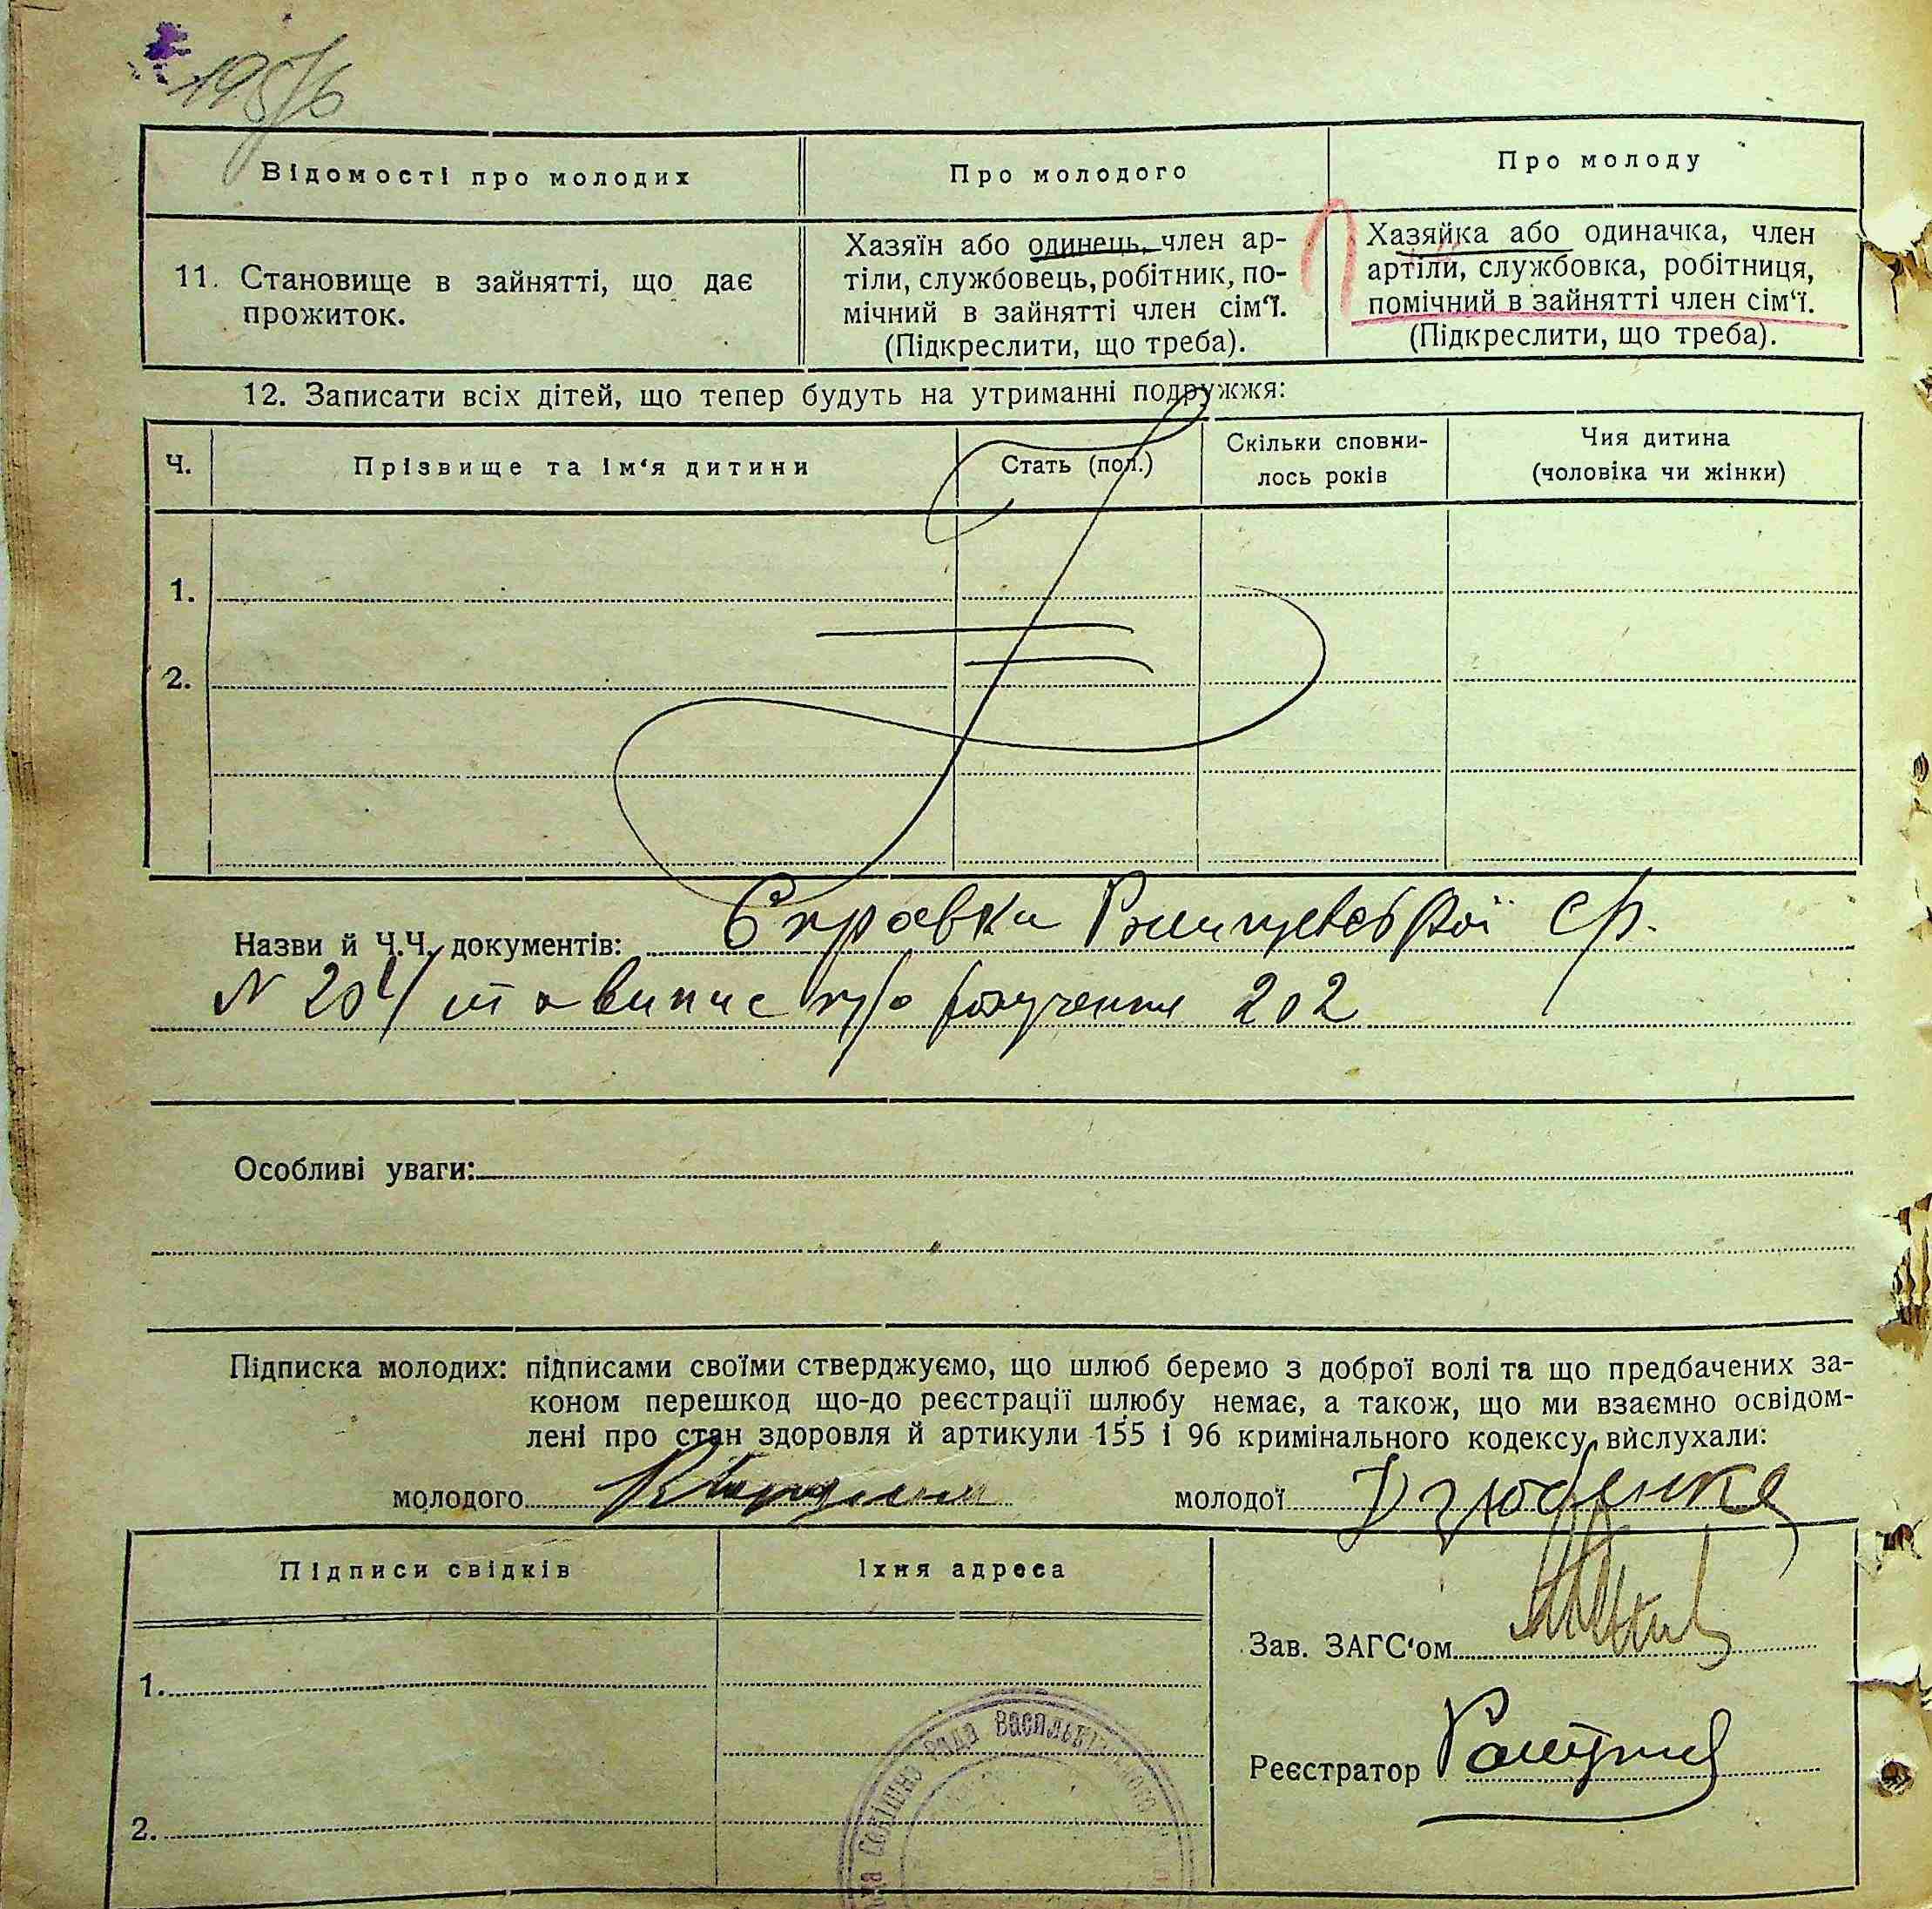 195/6
Відомості про молодих
Про молодого
Про молоду
11. Становище в зайнятті, що дає
прожиток.
Хазяїн або одинець, член ар-
тіли, службовець, робітник, по-
мічний в зайнятті член сім'ї.
(Підкреслити, що треба).
Хазяйка або одиначка, член
артіли, службовка, робітниця,
помічний в зайнятті член сім'ї.
(Підкреслити, що треба).
12. Записати всіх дітей, що тепер будуть на утриманні подружжя:
Ч.
Прізвище та ім'я дитини
Стать (пол.)
Скільки сповни-
лось років
Чия дитина
(чоловіка чи жінки)
1.
2.
Назви й Ч.Ч. документів: Справка с/р.
N 204 та випис про 202
Особливі уваги:
Підписка молодих: підписами своїми стверджуємо, що шлюб беремо з доброї волі та що предбачених за-
коном перешкод що-до реєстрації шлюбу немає, а також, що ми взаємно освідом-
лені про стан здоровля й артикули 155 і 96 кримінального кодексу вислухали:
молодого
молодої Дзюбенко
Підписи свідків
Їхня адреса
1.
2.
Зав. ЗАГС'ом
Реєстратор
Рада Васильківського